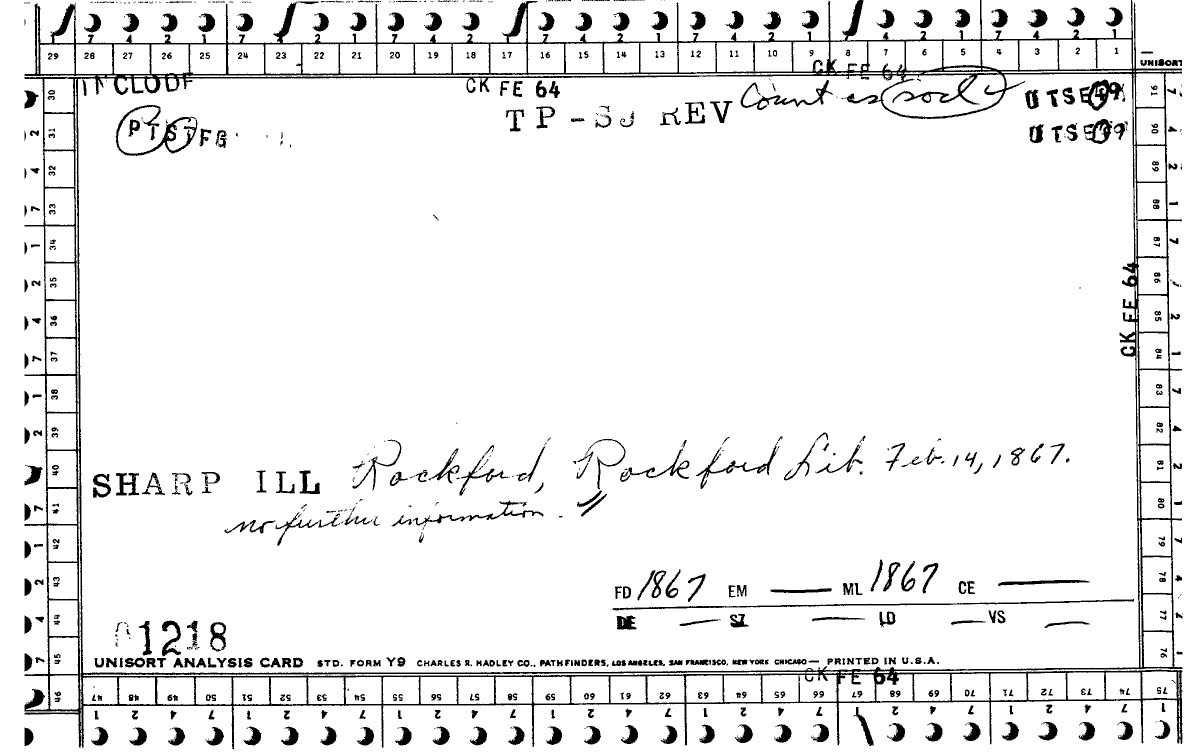 7 4 2 1 7 4 2 1 7 4 2 1 7 4 2 1 7 4 2 1 7 4 2 1 7 4 2 1
29 28 27 26 25 24 23 22 21 20 19 18 17 16 15 14 13 12 11 10 9 8 7 6 5 4 3 2 1
UNISORT
CK FE 64
INCLODE CK FE 64
TP-SJ REV Count as socl
PTSTFG
UTSE
UTSE 99
30 31 32 33 34 35 36 37 38 39 40 41 42 43 44 45 46
91 90 89 88 87 86 85 84 83 82 81 80 79 78 77 76
CK FE 64
SHARP ILL Rockford, Rockford Lib. Feb. 14, 1867.
no further information.
FD 1867 EM — ML 1867 CE —
DE — SZ — LD — VS —
01218
UNISORT ANALYSIS CARD STD. FORM Y9 CHARLES R. HADLEY CO., PATHFINDERS, LOS ANGELES, SAN FRANCISCO, NEW YORK CHICAGO — PRINTED IN U.S.A.
CK FE 64
47 48 49 50 51 52 53 54 55 56 57 58 59 60 61 62 63 64 65 66 67 68 69 70 71 72 73 74 75
1 2 4 7 1 2 4 7 1 2 4 7 1 2 4 7 1 2 4 7 1 2 4 7 1 2 4 7 1